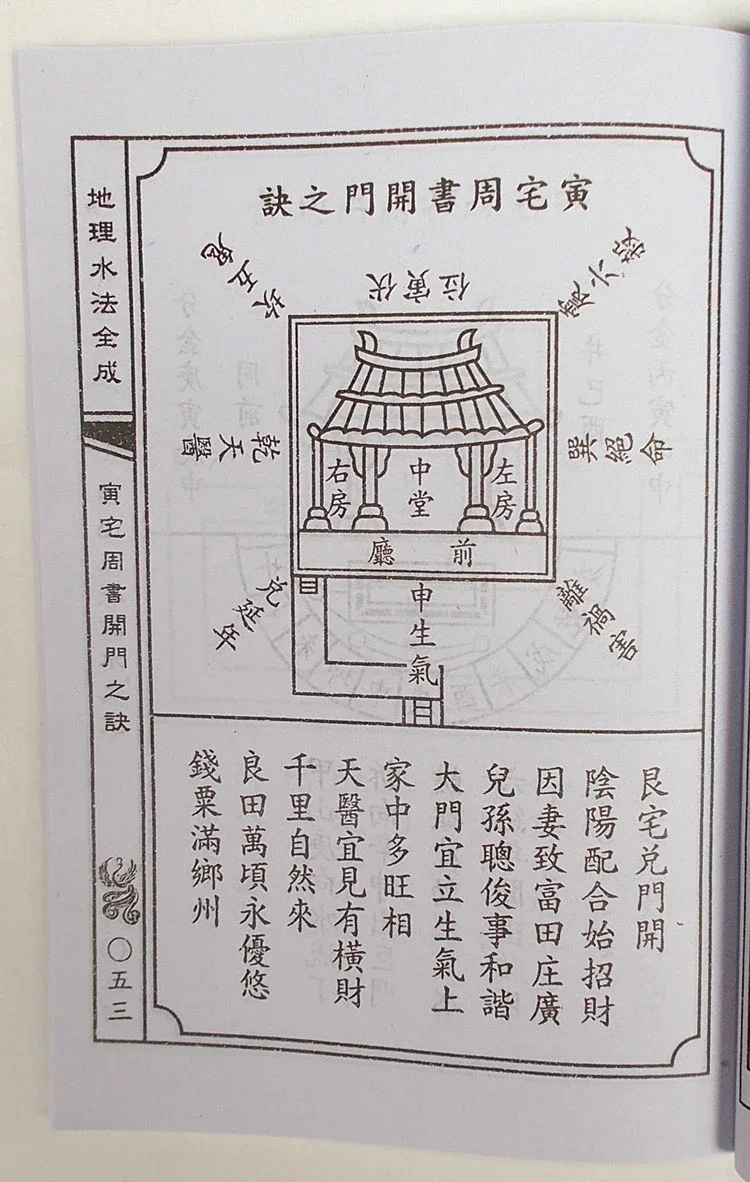 寅宅周書開門之訣
伏寅位
震六煞
坎五鬼
巽絕命
乾天醫
左房
中堂
右房
前廳
離禍害
申生氣
兌延年
艮宅兌門開
陰陽配合始招財
因妻致富田庄廣
兒孫聰俊事和諧
大門宜立生氣上
家中多旺相
天醫宜見有橫財
千里自然來
良田萬頃永優悠
錢粟滿鄉州
地理水法全成
寅宅周書開門之訣
〇五三